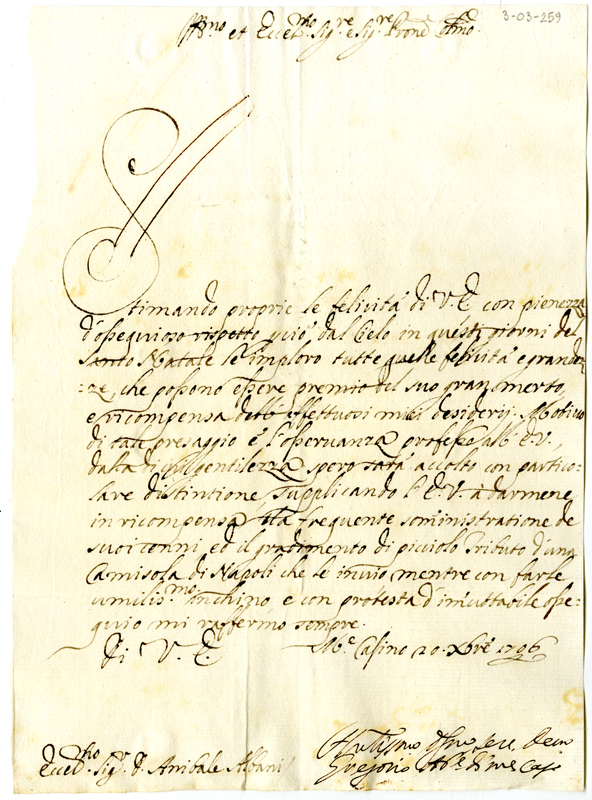 3-03-259
Ill.mo et Ecce.mo Sig.re e Sig.re Prone
Stimando proprie le felicità di V. E. con pienezza
d'ossequioso rispetto, quiò dal Cielo in questi giorni del
Santo Natale le imploro tutte quelle felicità e grandez
:ze, che possono essere premio del suo gran merto,
e ricompensa delli effettuosi miei desiderij. Motivo
di tale presaggio è l'osservanza professo all' E. V.,
dalla di cui gentilezza spero sarà accolto con partico:
lare distintione, supplicando l' E. V. à darmene
in ricompensa la frequente soministratione de
suoi cenni ed il gradimento di picciolo Tributo d'una
Camisola di Napoli che le invio mentre con farle
umilis.mo Inchino, e con protesta d'imutabile osse:
quio mi raffermo sempre.
Di V. E. M.e Casino 20. Xbre 1706
Ecce.mo Sig.r D. Anibale Albani
Gregorio Ab.e di M.e Cas.o